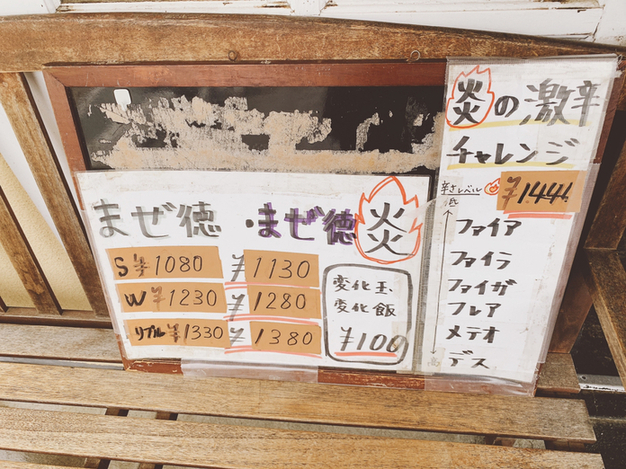 まぜ徳 ・まぜ徳 炎
S ¥1080 ¥1130
W ¥1230 ¥1280
リプル ¥1330 ¥1380
変化玉
変化飯
¥100
炎の激辛
チャレンジ
辛さレベル ¥1444
低
ファイア
ファイラ
ファイガ
フレア
メテオ
デス